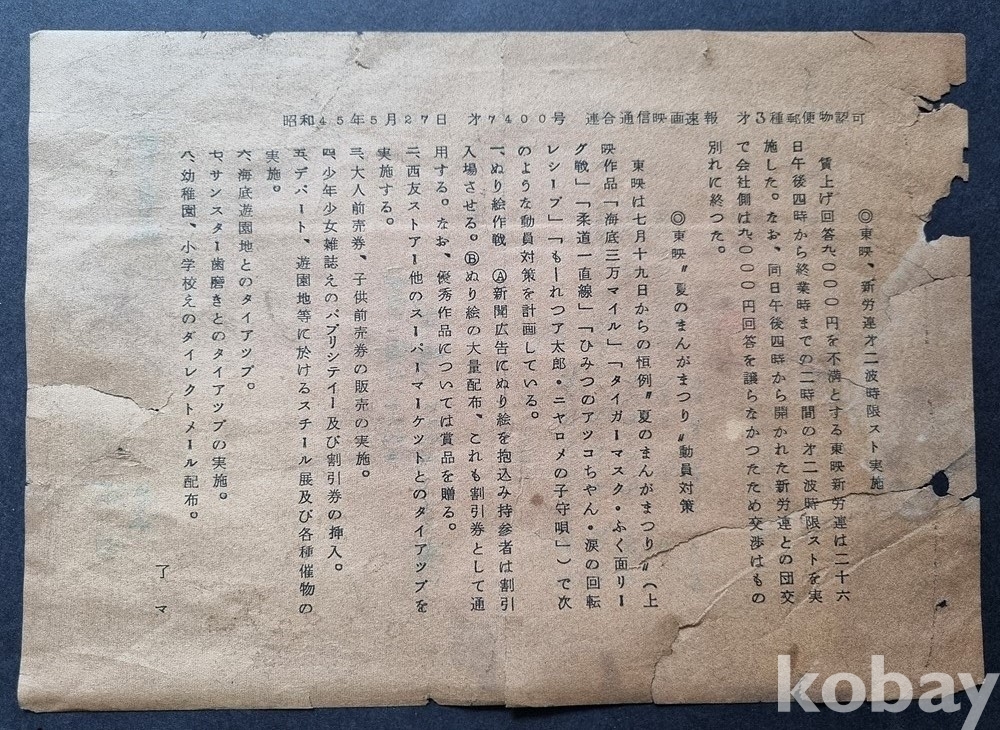 昭和45年5月27日　才7400号　連合通信映画速報　才3種郵便物認可
◎東映、新労連才二波時限スト実施
賃上げ回答九〇〇〇円を不満とする東映新労連は二十六
日午後四時から終業時までの二時間の才二波時限ストを実
施した。なお、同日午後四時から開かれた新労連との団交
で会社側は九〇〇〇円回答を譲らなかつたため交渉はもの
別れに終つた。
◎東映〃夏のまんがまつり〃動員対策
東映は七月十九日からの恒例〃夏のまんがまつり〃（上
映作品「海底三万マイル」「タイガーマスク・ふく面リー
グ戦」「柔道一直線」「ひみつのアツコちやん・涙の回転
レシーブ」「もーれつア太郎・ニヤロメの子守唄」）で次
のような動員対策を計画している。
一、ぬり絵作戦　Ⓐ新聞広告にぬり絵を抱込み持参者は割引
入場させる。Ⓑぬり絵の大量配布、これも割引券として通
用する。なお、優秀作品については賞品を贈る。
二、西友ストアー他のスーパーマーケツトとのタイアツプを
実施する。
三、大人前売券、子供前売券の販売の実施。
四、少年少女雑誌えのパブリシテイー及び割引券の挿入。
五、デパート、遊園地等に於けるスチール展及び各種催物の
実施。
六、海底遊園地とのタイアツプ。
七、サンスター歯磨きとのタイアツプの実施。
八、幼稚園、小学校えのダイレクトメール配布。
了　マ
kobay